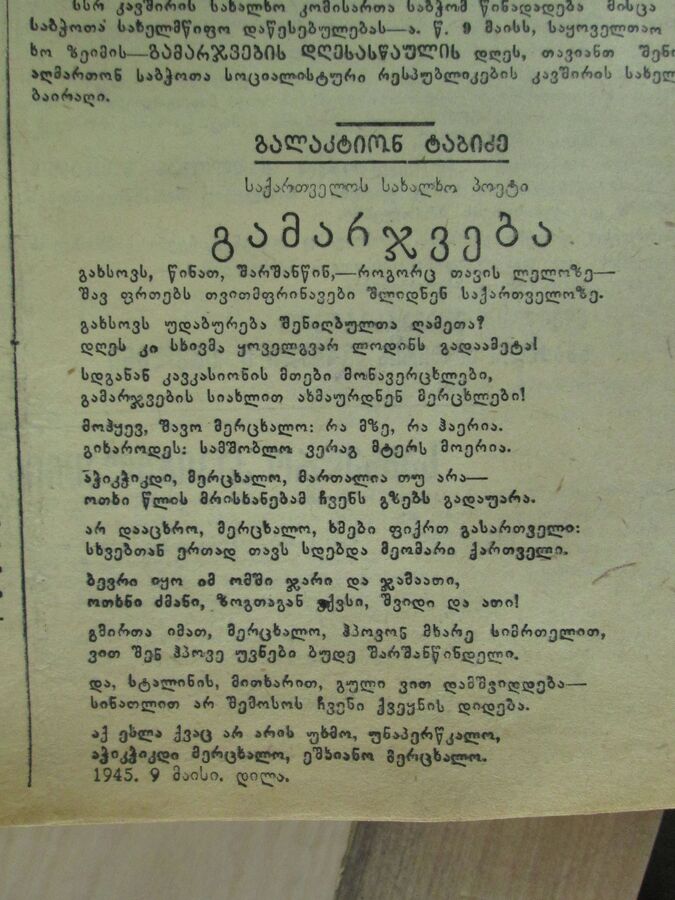 სსრ კავშირის სახალხო კომისართა საბჭომ წინადადება მისცა
საბჭოთა სახელმწიფო დაწესებულებას—ა. წ. 9 მაისს, საყოველთაო
ხო ზეიმის—ᲒᲐᲛᲐᲠᲯᲕᲔᲑᲘᲡ ᲓᲦᲔᲡᲐᲡᲬᲐᲣᲚᲘᲡ დღეს, თავიანთ შენ
აღმართონ საბჭოთა სოციალისტური რესპუბლიკების კავშირის სახელ
ბაირაღი.
გალაკტიონ ტაბიძე
საქართველოს სახალხო პოეტი
გამარჯვება
გახსოვს, წინათ, შარშანწინ,—როგორც თავის ლელოზე—
შავ ფრთებს თვითმფრინავები შლიდნენ საქართველოზე.
გახსოვს უდაბურება შენიღბულთა ღამეთა?
დღეს კი სხივმა ყოველგვარ ლოდინს გადაამეტა!
სდგანან კავკასიონის მთები მონავერცხლები,
გამარჯვების სიახლით ახმაურდნენ მერცხლები!
მოჰყევ, შავო მერცხალო: რა მზე, რა ჰაერია.
გიხაროდეს: სამშობლო ვერაგ მტერს მოერია.
აჭიკჭიკდი, მერცხალო, მართალია თუ არა—
ოთხი წლის მრისხანებამ ჩვენს გზებს გადაუარა.
არ დააცხრო, მერცხალო, ხმები ფიქრთ გასართველი:
სხვებთან ერთად თავს სდებდა მეომარი ქართველი.
ბევრი იყო იმ ომში ჯარი და ჯამაათი,
ოთხნი ძმანი, ზოგთაგან ექვსი, შვიდი და ათი!
გმირთა იმათ, მერცხალო, ჰპოვონ მხარე სიმრთელით,
ვით შენ ჰპოვე უვნები ბუდე შარშანწინდელი.
და, სტალინის, მითხარით, გული ვით დამშვიდდება—
სინათლით არ შემოსოს ჩვენი ქვეყნის დიდება.
აქ ეხლა ქვაც არ არის უხმო, უნაპერწკალო,
აჭიკჭიკდი მერცხალო, ეშხიანო მერცხალო.
1945. 9 მაისი. დილა.